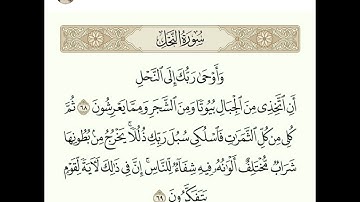 سُورَةُ النَّحْلِ
وَأَوْحَىٰ رَبُّكَ إِلَى النَّحْلِ
أَنِ اتَّخِذِي مِنَ الْجِبَالِ بُيُوتًا وَمِنَ الشَّجَرِ وَمِمَّا يَعْرِشُونَ ٦٨ ثُمَّ
كُلِي مِن كُلِّ الثَّمَرَاتِ فَاسْلُكِي سُبُلَ رَبِّكِ ذُلُلًا ۚ يَخْرُجُ مِن بُطُونِهَا
شَرَابٌ مُّخْتَلِفٌ أَلْوَانُهُ فِيهِ شِفَاءٌ لِّلنَّاسِ ۗ إِنَّ فِي ذَٰلِكَ لَآيَةً لِّقَوْمٍ
يَتَفَكَّرُونَ ٦٩